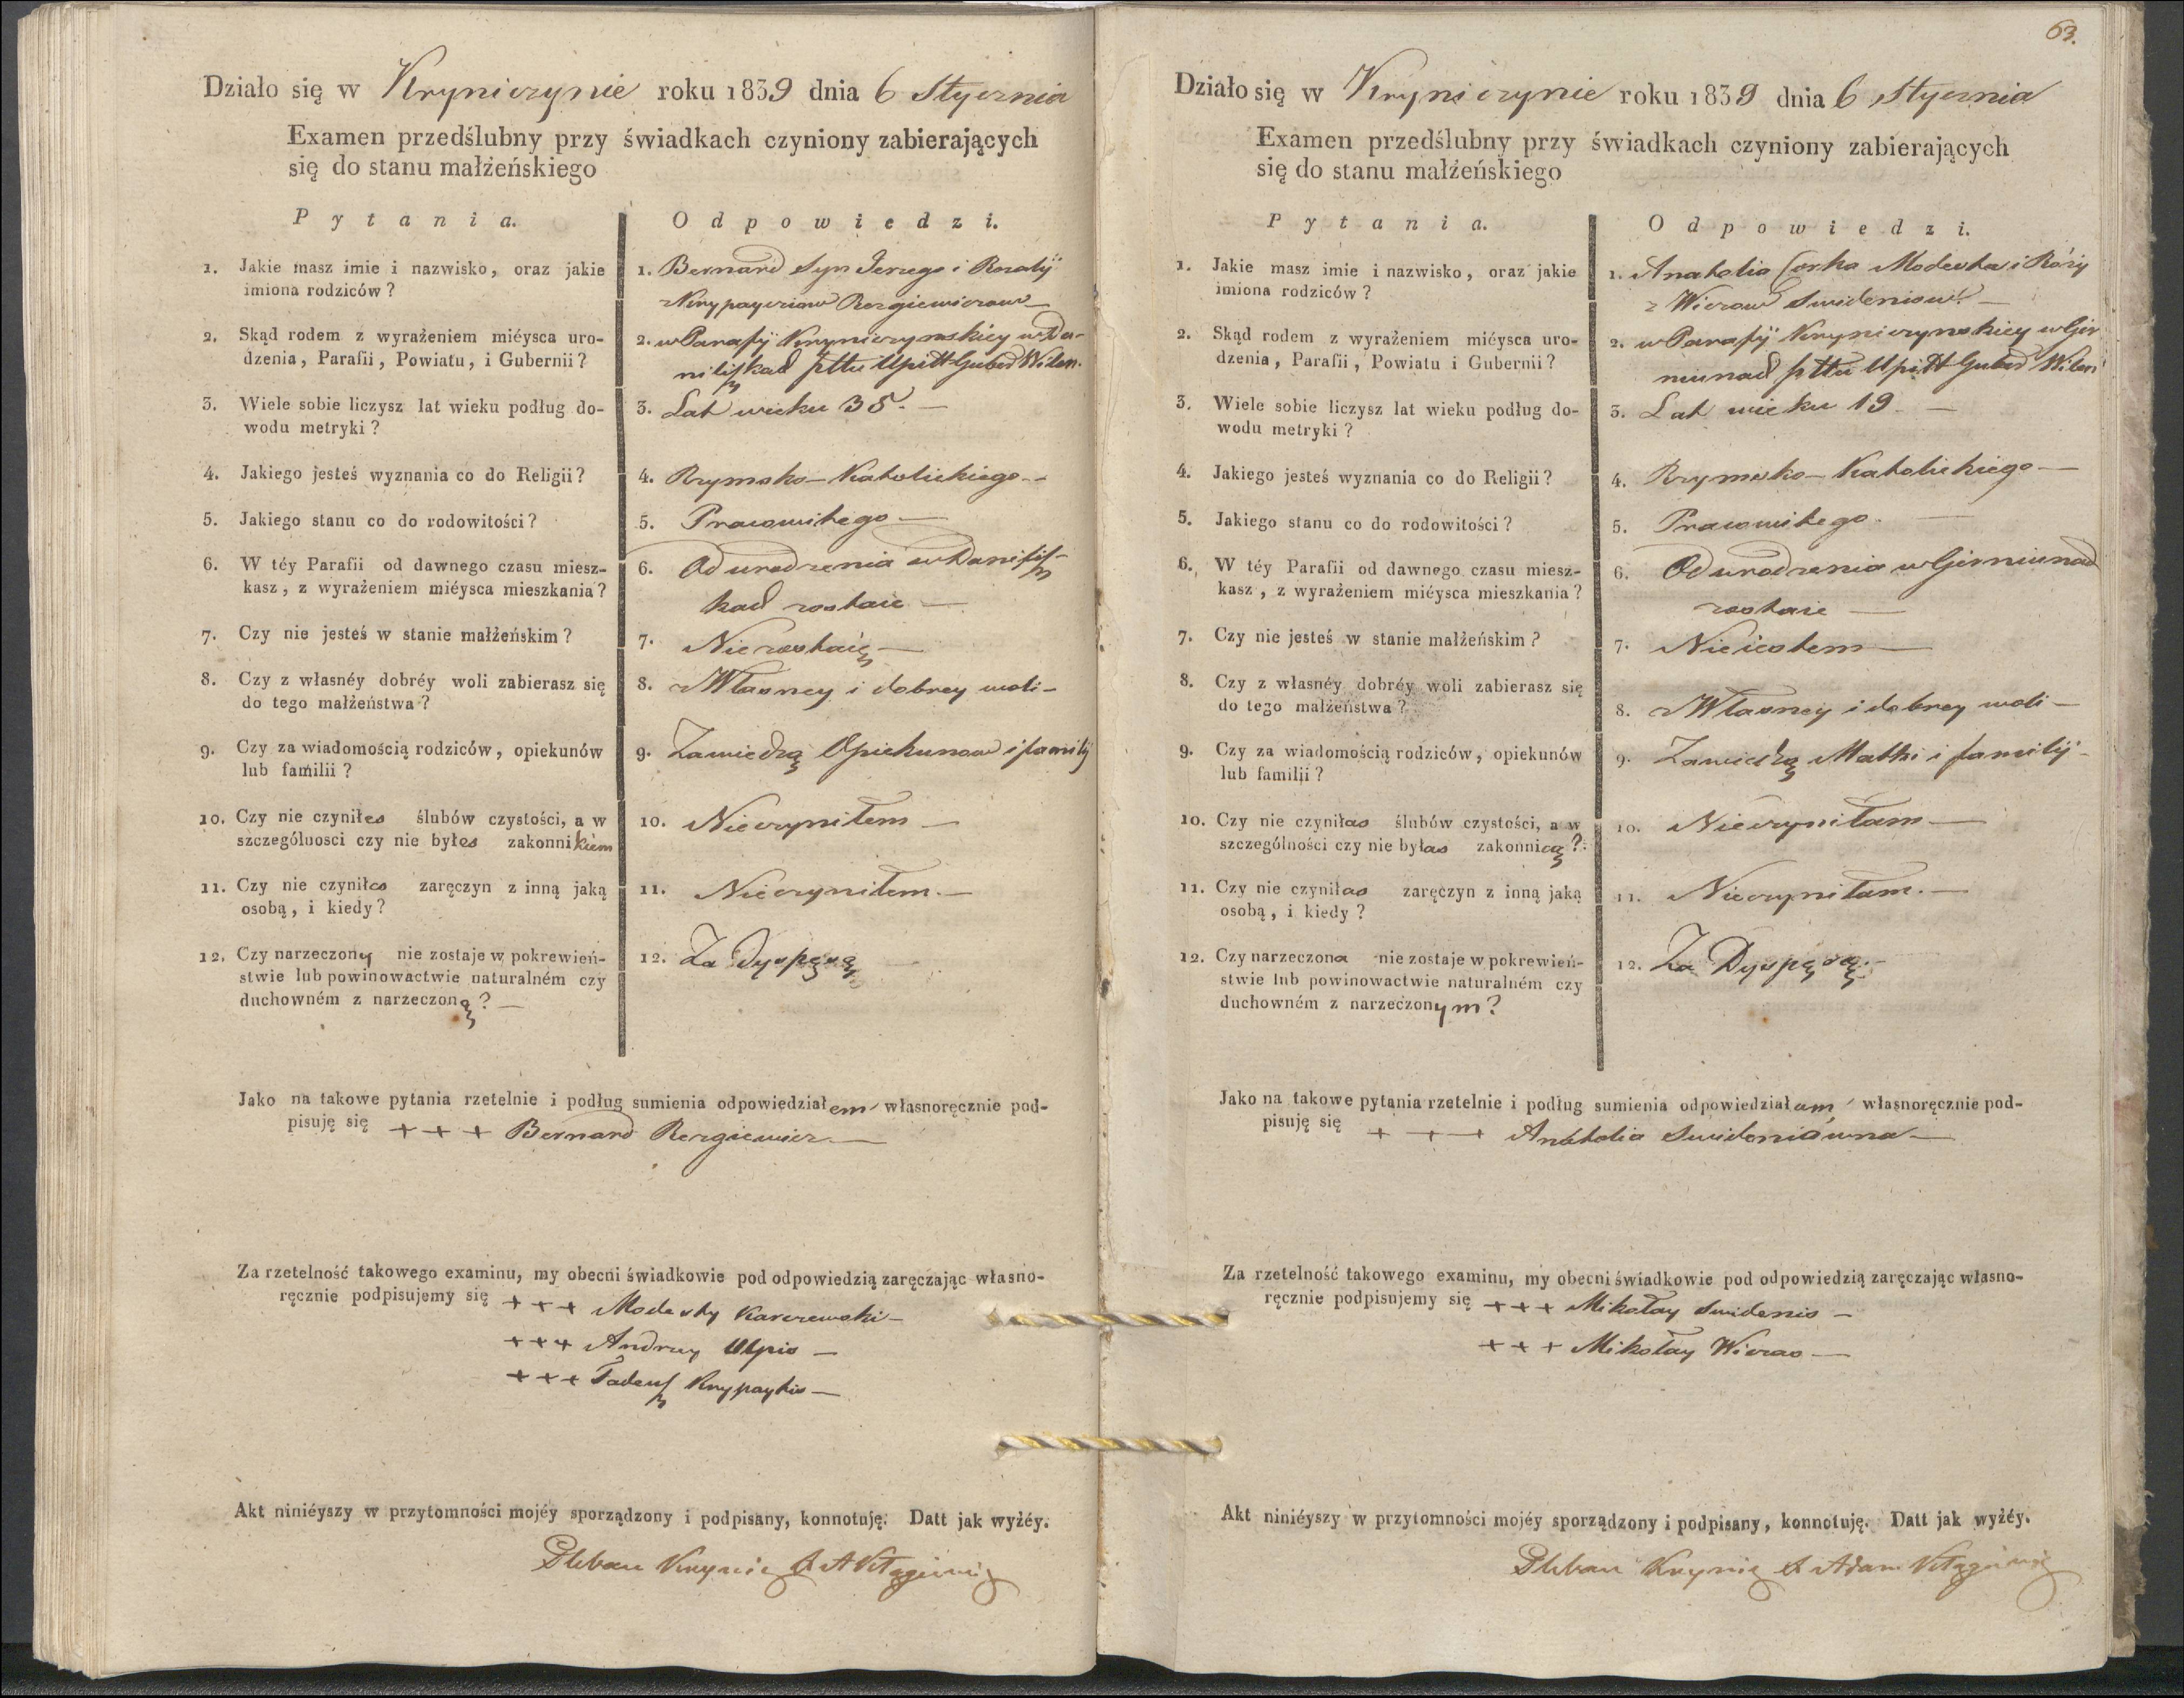 Działo się w Kryniczynie roku 1839 dnia 6 Stycznia
Examen przedślubny przy świadkach czyniony zabierających
się do stanu małżeńskiego
Pytania.
Odpowiedzi.
1. Jakie masz imie i nazwisko, oraz jakie
imiona rodziców?
1. Bernard Syn Jerzego i Rozalij
2. Skąd rodem z wyrażeniem miéysca uro-
dzenia, Parafii, Powiatu, i Gubernii?
2. w Parafij Kryniczynskiey w Da-
niliszkach pttu Upitt Guber Wilen.
3. Wiele sobie liczysz lat wieku podług do-
wodu metryki?
3. Lat wieku 35. —
4. Jakiego jesteś wyznania co do Religii?
4. Rzymsko-Katolickiego —
5. Jakiego stanu co do rodowitości?
5. Pracowitego —
6. W téy Parafii od dawnego czasu miesz-
kasz, z wyrażeniem miéysca mieszkania?
6. Od urodzenia w Danilisz-
kach zostaie —
7. Czy nie jesteś w stanie małżeńskim?
7. Nie zostaię —
8. Czy z własnéy dobréy woli zabierasz się
do tego małżeństwa?
8. Własney i dobrey woli —
9. Czy za wiadomością rodziców, opiekunów
lub familii?
9. Zawiedzą Opiekunow i familij
10. Czy nie czyniłes ślubów czystości, a w
szczególnosci czy nie byłes zakonnikiem
10. Nieczyniłem —
11. Czy nie czyniłes zaręczyn z inną jaką
osobą, i kiedy?
11. Nieczyniłem. —
12. Czy narzeczony nie zostaje w pokrewień-
stwie lub powinowactwie naturalném czy
duchowném z narzeczoną? —
12. Za Dyspęsą
Jako na takowe pytania rzetelnie i podług sumienia odpowiedziałem własnoręcznie pod-
pisuję się + + + Bernard Rezgiewicz —
Za rzetelność takowego examinu, my obecni świadkowie pod odpowiedzią zaręczając własno-
ręcznie podpisujemy się + + + Modesty Karczewski —
+ + + Andrzey Ulpis —
+ + + Tadeusz Krypaytis —
Akt niniéyszy w przytomności mojéy sporządzony i podpisany, konnotuję. Datt jak wyżéy.
Pleban
63.
Działo się w Kryniczynie roku 1839 dnia 6 Stycznia
Examen przedślubny przy świadkach czyniony zabierających
się do stanu małżeńskiego
Pytania.
Odpowiedzi.
1. Jakie masz imie i nazwisko, oraz jakie
imiona rodziców?
1. Anatolia Corka Modesta i Róży
z Wicsow Swideniow —
2. Skąd rodem z wyrażeniem miéysca uro-
dzenia, Parafii, Powiatu i Gubernii?
2. w Parafij Kryniczynskiey w Gier
niunach pttu Upitt Guber Wilen
3. Wiele sobie liczysz lat wieku podług do-
wodu metryki?
3. Lat wieku 19. —
4. Jakiego jesteś wyznania co do Religii?
4. Rzymsko-Katolickiego —
5. Jakiego stanu co do rodowitości?
5. Pracowitego. —
6. W téy Parafii od dawnego czasu miesz-
kasz, z wyrażeniem miéysca mieszkania?
6. Od urodzenia w Gierniunach
zostaie —
7. Czy nie jesteś w stanie małżeńskim?
7. Nie iestem —
8. Czy z własnéy dobréy woli zabierasz się
do tego małżeństwa?
8. Własney i dobrey woli —
9. Czy za wiadomością rodziców, opiekunów
lub familii?
9. Zawiedzą Matki i familij —
10. Czy nie czyniłas ślubów czystości, a w
szczególności czy nie byłas zakonnicą?
10. Nieczyniłam —
11. Czy nie czyniłas zaręczyn z inną jaką
osobą, i kiedy?
11. Nieczyniłam. —
12. Czy narzeczona nie zostaje w pokrewień-
stwie lub powinowactwie naturalném czy
duchowném z narzeczonym?
12. Za Dyspęsą. —
Jako na takowe pytania rzetelnie i podług sumienia odpowiedziałam własnoręcznie pod-
pisuję się + + + Anatolia Swideniówna —
Za rzetelność takowego examinu, my obecni świadkowie pod odpowiedzią zaręczając własno-
ręcznie podpisujemy się + + + Mikołay Swidenis —
+ + + Mikołay Wicsas —
Akt niniéyszy w przytomności mojéy sporządzony i podpisany, konnotuję. Datt jak wyżéy.
Pleban Adam